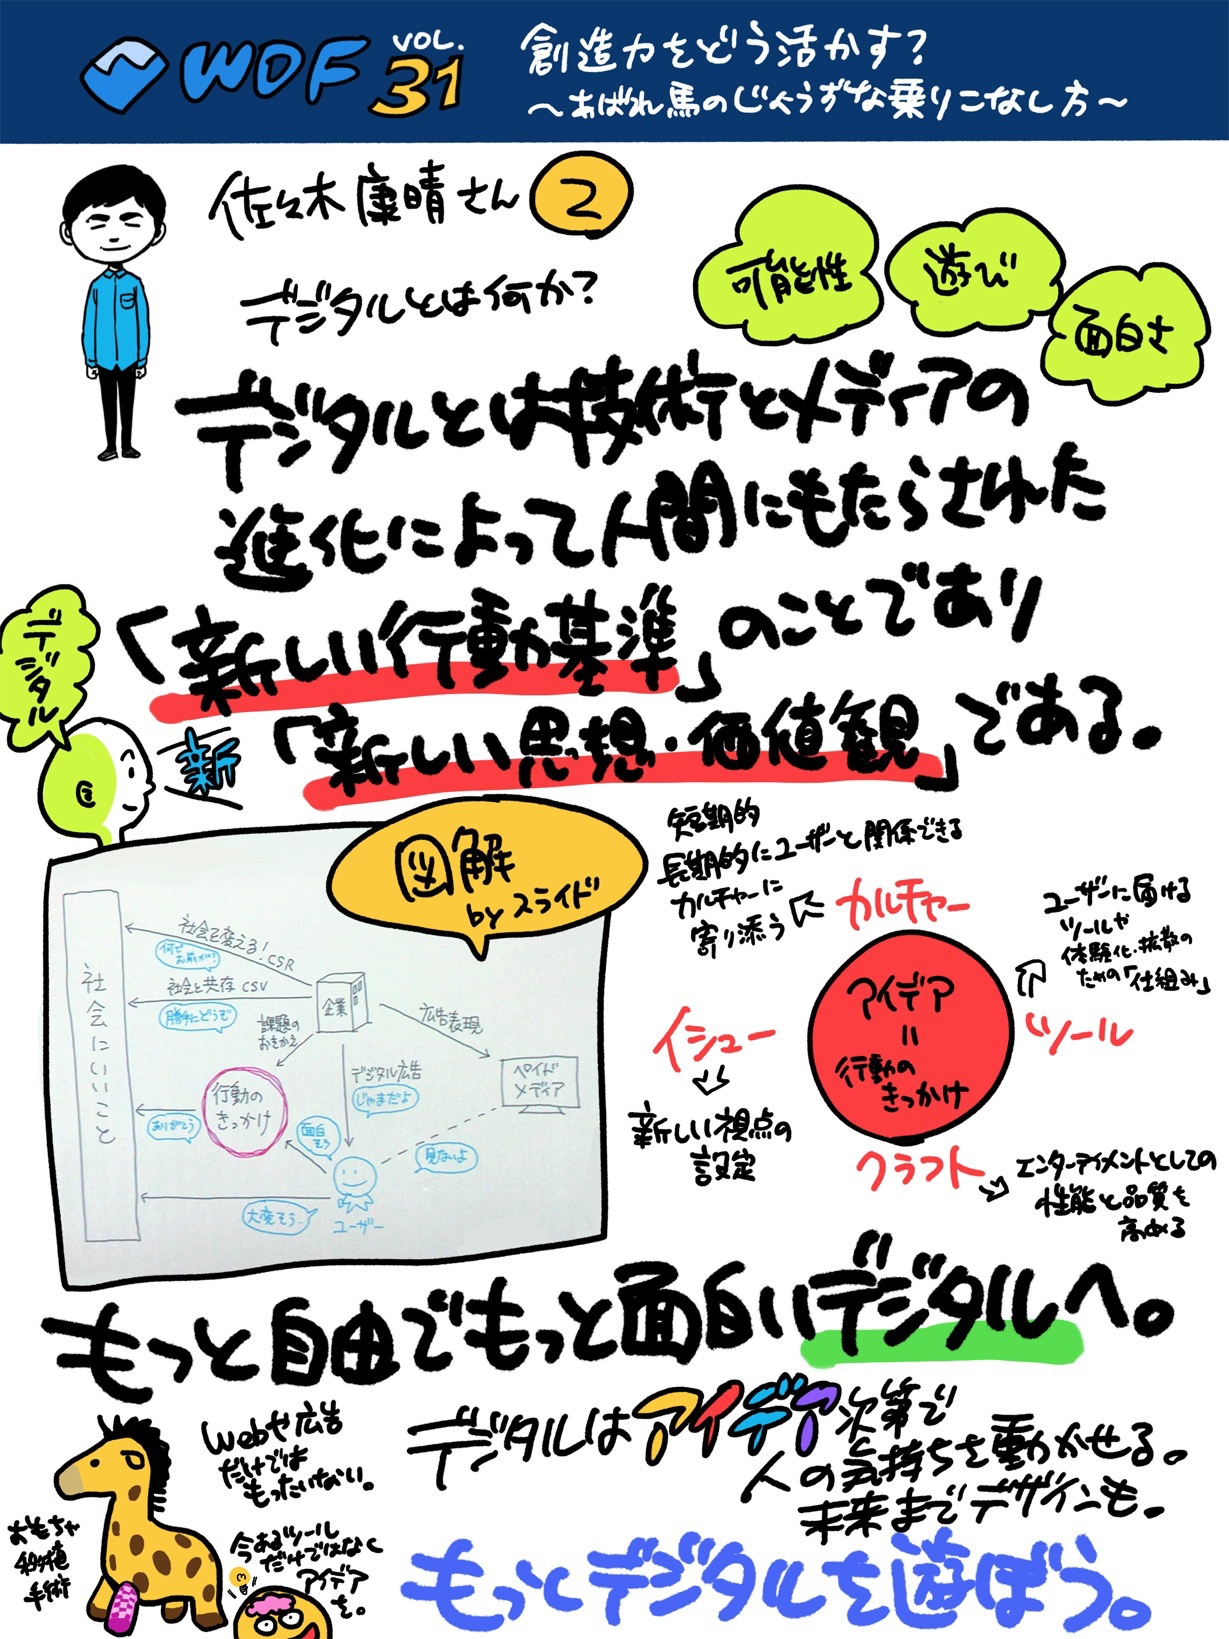 WDF VOL.31
創造力をどう活かす?
～あばれ馬のじょうずな乗りこなし方～
佐々木康晴さん 2
デジタルとは何か?
可能性
遊び
面白さ
デジタルとは技術とメディアの
進化によって人間にもたらされた
「新しい行動基準」のことであり
「新しい思想・価値観」である。
デジタル
新
図解
by スライド
社会にいいこと
社会を変える! CSR
何でお前が?
社会と共存 CSV
勝手にどうぞ
企業
課題の
おきかえ
広告表現
ペイド
メディア
デジタル広告
じゃまだよ
行動の
きっかけ
ありがとう
面白
そう
見ないよ
大変そう…
ユーザー
短期的
長期的にユーザーと関係できる
カルチャーに
寄り添う
カルチャー
ユーザーに届ける
ツールや
体験化・拡散の
ための「仕組み」
アイデア
=
行動の
きっかけ
イシュー
ツール
新しい視点の
設定
クラフト
エンターテイメントとしての
性能と品質を
高める
もっと自由でもっと面白いデジタルへ。
Webや広告
だけでは
もったいない。
デジタルはアイデア次第で
人の気持ちを動かせる。
未来までデザインも。
おもちゃ
移植
手術
今あるツール
だけではなく
アイデア
を。
もっとデジタルを遊ぼう。